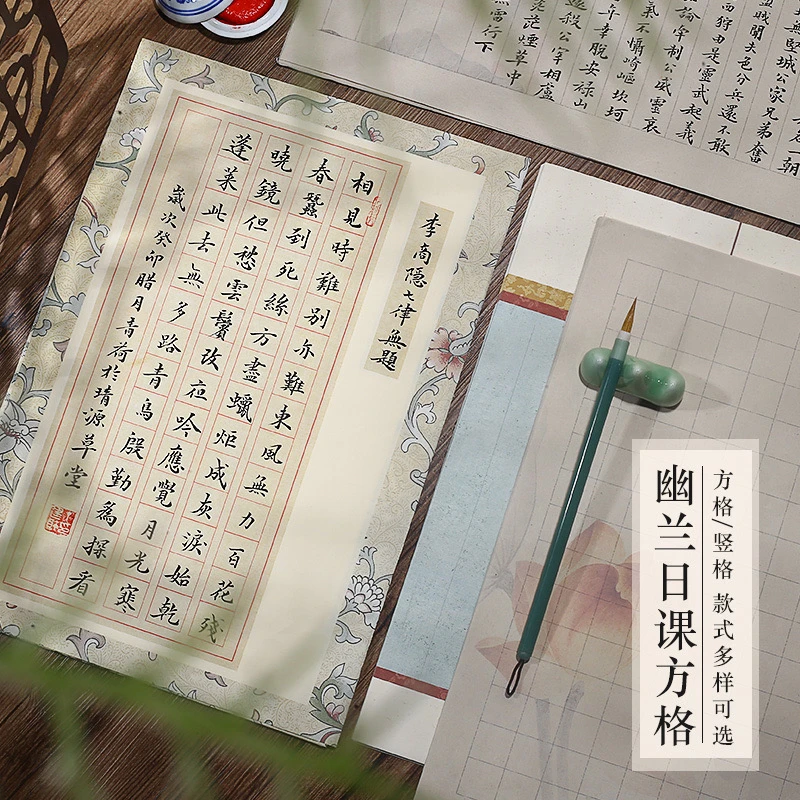 一朝
無堅城公家兄弟奮
盟賊聞失色分兵還不敢
狩由是靈武起義
牢制公威靈哀
氣不懾崎嶇坎坷
年卒脫安祿山
殺公宰相盧
茫煙草中
行下
李商隱七律無題
相見時難別亦難東風無力百花殘
春蠶到死絲方盡蠟炬成灰淚始乾
曉鏡但愁雲鬢改夜吟應覺月光寒
蓬萊此去無多路青鳥殷勤為探看
歲次癸卯腊月青荷於清源草堂
幽兰日课方格
方格/竖格 款式多样可选